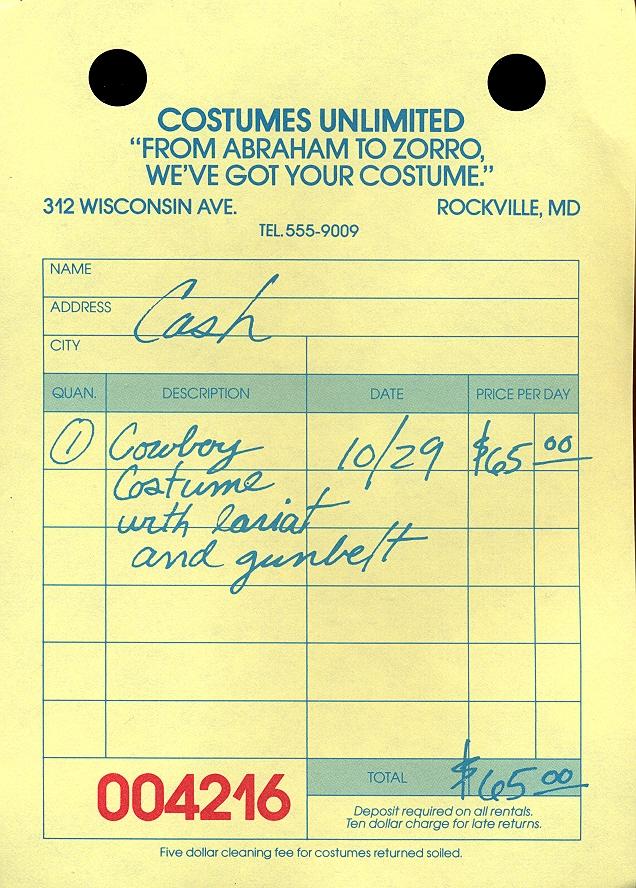 COSTUMES UNLIMITED
“FROM ABRAHAM TO ZORRO,
WE'VE GOT YOUR COSTUME.”
312 WISCONSIN AVE. ROCKVILLE, MD
TEL. 555-9009
NAME
ADDRESS Cash
CITY
QUAN. DESCRIPTION DATE PRICE PER DAY
1 Cowboy 10/29 $65 00
Costume
with lariat
and gunbelt
004216 TOTAL $65 00
Deposit required on all rentals.
Ten dollar charge for late returns.
Five dollar cleaning fee for costumes returned soiled.